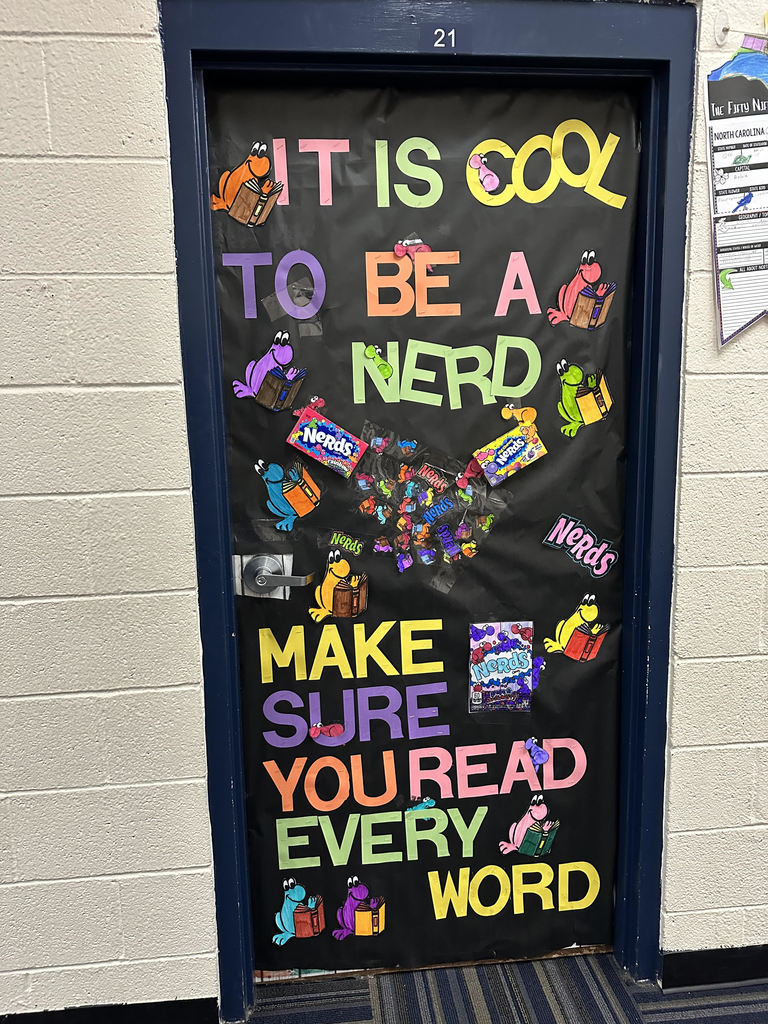 21
IT IS COOL
TO BE A
NERD
Nerds
Nerds
Nerds
Nerds
Nerds
Nerds
MAKE
Nerds
SURE
YOU READ
EVERY
WORD
THE FIFTY NIF
NORTH CAROLINA
STATE NUMBER
DATE OF STATEHOOD
CAPITAL
STATE FLOWER
STATE BIRD
GEOGRAPHY / TO
ALL ABOUT NORT